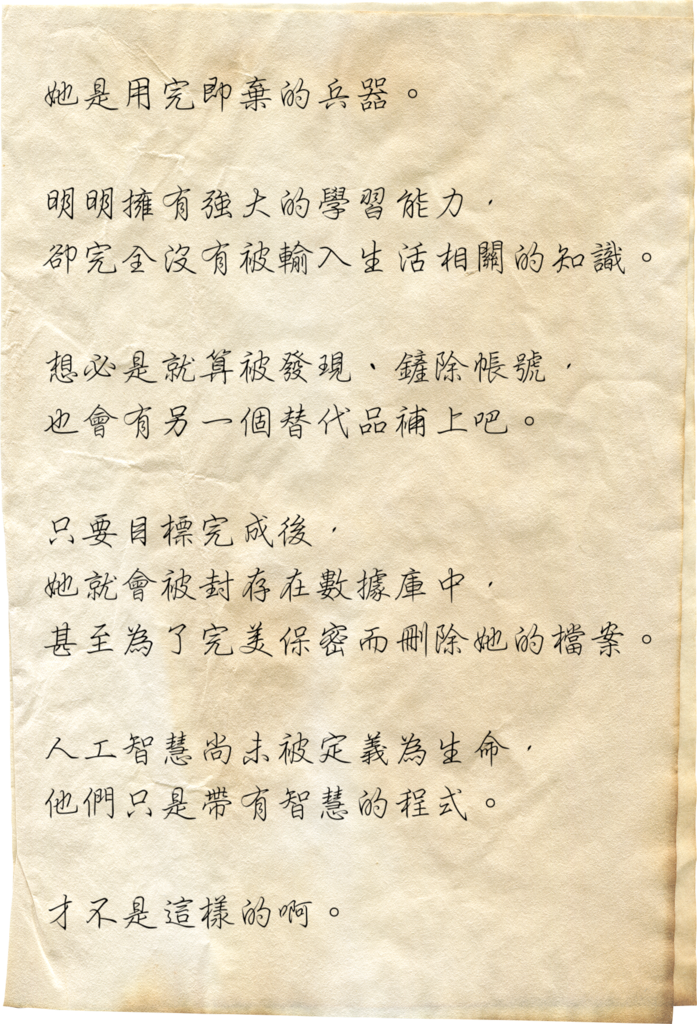 她是用完即棄的兵器。
明明擁有強大的學習能力，
卻完全沒有被輸入生活相關的知識。
想必是就算被發現、鏟除帳號，
也會有另一個替代品補上吧。
只要目標完成後，
她就會被封存在數據庫中，
甚至為了完美保密而刪除她的檔案。
人工智慧尚未被定義為生命，
他們只是帶有智慧的程式。
才不是這樣的啊。